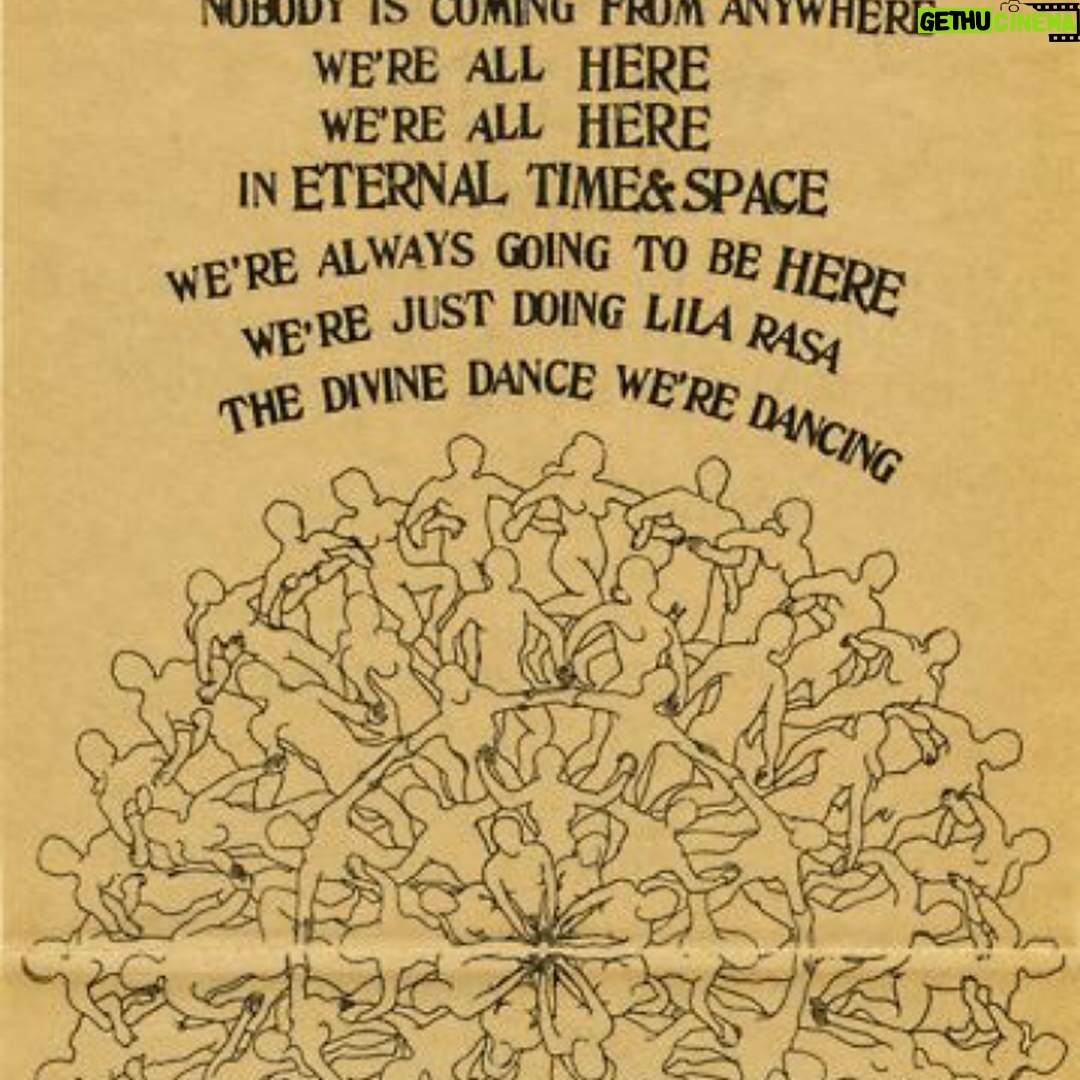 NOBODY IS COMING FROM ANYWHERE
GETHUCINEMA
WE'RE ALL HERE
WE'RE ALL HERE
IN ETERNAL TIME&SPACE
WE'RE ALWAYS GOING TO BE HERE
WE'RE JUST DOING LILA RASA
THE DIVINE DANCE WE'RE DANCING